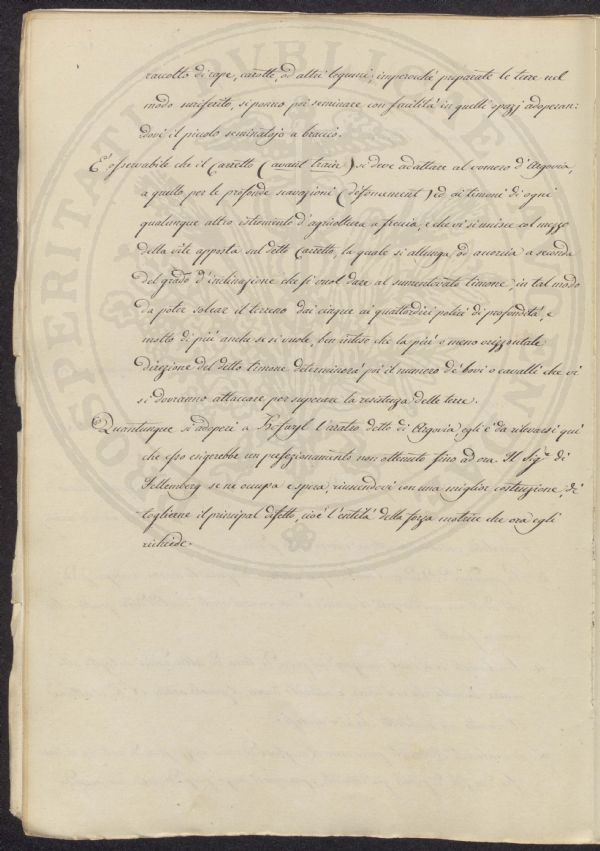 raccolto di rape, carotte, od altri legumi; imperochè preparate le terre nel
modo suriferito, si ponno poi seminare con facilità in quelli spazj adoperan:
dovi il piccolo seminatojo a braccio.
E' osservabile che il Carretto (avant train) si deve adattare al vomero d'Argovia,
a quello per le profonde scavazioni (défoncement) ed ai timoni di ogni
qualunque altro istromento d'agricoltura a freccia, e che vi si unisce col mezzo
della vite apposta sul detto Carretto, la quale si allunga, od accorcia a seconda
del grado d'inclinazione che si vuol dare al sumentovato timone, in tal modo
da poter solcare il terreno dai cinque ai quattordici polici di profondità, e
molto di più anche se si vuole, ben inteso che la più o meno orizzontale
direzione del detto timone determinerà poi il numero de' bovi o cavalli che vi
si dovranno attaccare per superare la resistenza delle terre.
Quantunque si adoperi a Hofwyl l'arratro detto di Argovia egli è da rilevarsi quì
che esso esigerebbe un perfezionamento non ottenuto fino ad ora. Il Sig.r di
Fellemberg se ne occupa e spera, riuscendovi con una miglior costruzione, di
togliere il principal difetto, cioè l'entità della forza motrice che ora egli
richiede.
PROSPERITATI PUBLICAE